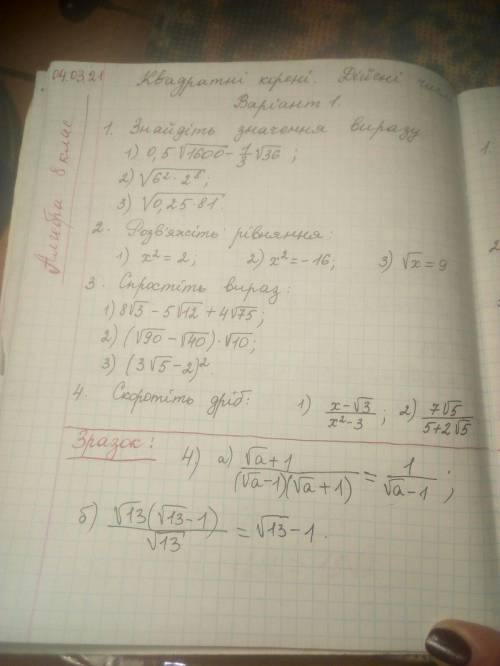 04.03.21
Квадратні корені. Дійсні
Варіант 1.
Алгебра 8 клас
1. Знайдіть значення виразу
1) 0,5√1600 - 1/3 √36 ;
2) √(6² · 2⁸);
3) √(0,25 · 81).
2. Розв'яжіть рівняння:
1) x² = 2; 2) x² = -16; 3) √x = 9
3. Спростіть вираз:
1) 8√3 - 5√12 + 4√75;
2) (√90 - √40) · √10;
3) (3√5 - 2)².
4. Скоротіть дріб: 1) (x-√3)/(x²-3) ; 2) 7√5/(5+2√5)
Зразок:
4) а) (√a+1)/((√a-1)(√a+1)) = 1/(√a-1) ;
б) √13(√13-1)/√13 = √13-1.
1.
2